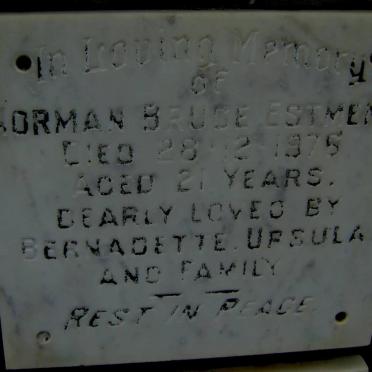 In Loving Memory
OF
NORMAN BRUCE ESTMENT
DIED 28·12·1975
AGED 21 YEARS.
DEARLY LOVED BY
BERNADETTE. URSULA
AND FAMILY
REST IN PEACE.